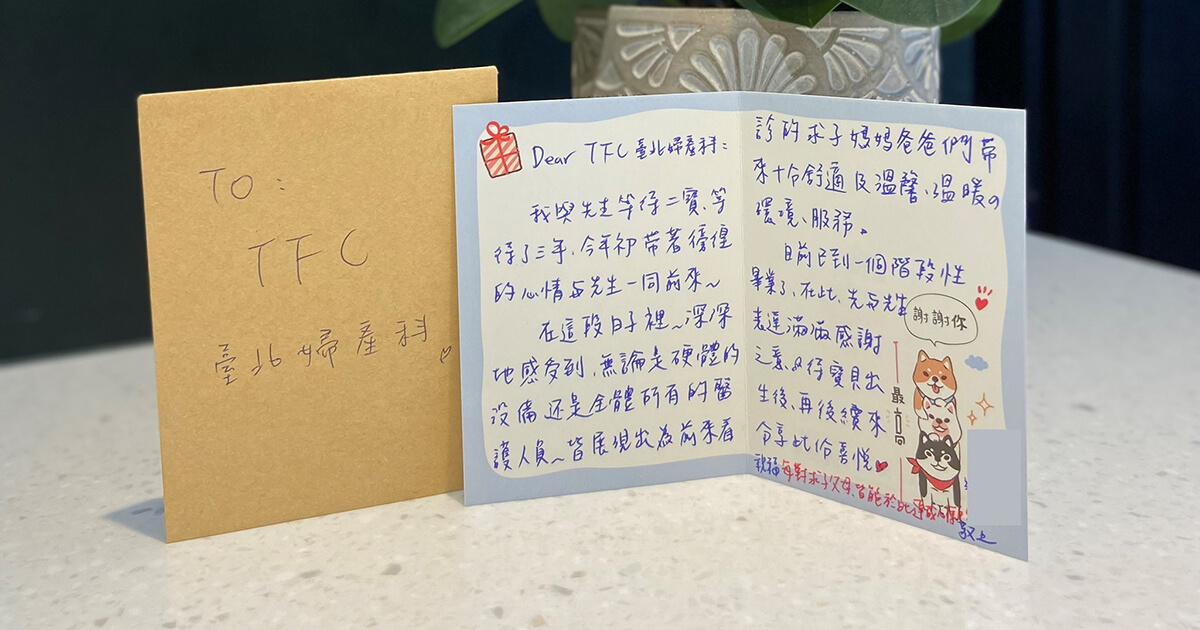 TO:
TFC
臺北婦產科
Dear TFC 臺北婦產科:
我與先生等待二寶、等
待了三年、今年初帶著徬徨
的心情與先生一同前來~
在這段日子裡~深深
地感受到、無論是硬體的
設備還是全體所有的醫
護人員~皆展現出為前來看
診的求子媽媽爸爸們帶
來十分舒適及溫馨、溫暖の
環境、服務。
目前已到一個階段性
畢業了、在此、先與先生
表達滿滿感謝
之意、待寶貝出
生後、再後續來
分享此份喜悅
祝福每對求子父母、皆能於此達成
敬上
謝謝你
最高